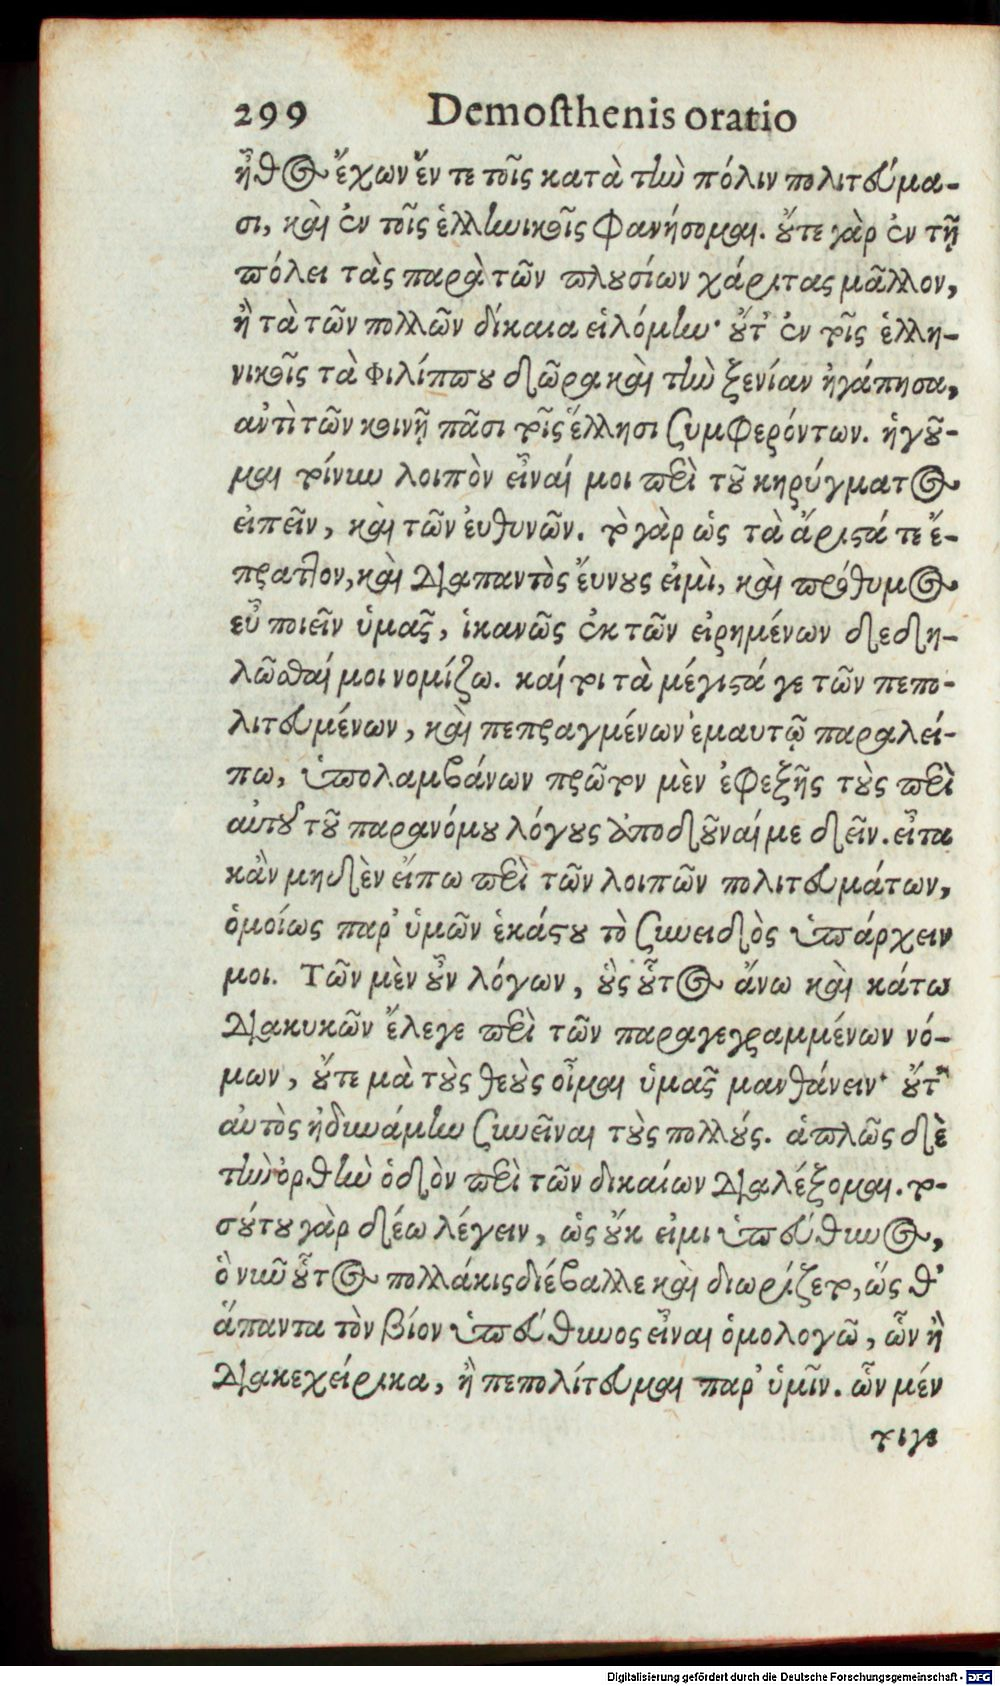 299 Demosthenis oratio
ἦθος ἔχων ἔν τε τοῖς κατὰ τὴν πόλιν πολιτεύμα-
σι, καὶ ἐν τοῖς ἑλληνικοῖς φανήσομαι. οὔτε γὰρ ἐν τῇ
πόλει τὰς παρὰ τῶν πλουσίων χάριτας μᾶλλον,
ἢ τὰ τῶν πολλῶν δίκαια εἱλόμην· οὔτ' ἐν τοῖς ἑλλη-
νικοῖς τὰ Φιλίππου δῶρα καὶ τὴν ξενίαν ἠγάπησα,
ἀντὶ τῶν κοινῇ πᾶσι τοῖς ἕλλησι συμφερόντων. ἡγοῦ-
μαι τοίνυν λοιπὸν εἶναί μοι περὶ τοῦ κηρύγματος
εἰπεῖν, καὶ τῶν ἐυθυνῶν. τὸ γὰρ ὡς τὰ ἄριστά τε ἔ-
πραττον, καὶ διαπαντὸς ἔυνους εἰμὶ, καὶ πρόθυμος
εὖ ποιεῖν ὑμᾶς, ἱκανῶς ἐκ τῶν εἰρημένων δεδη-
λῶσθαί μοι νομίζω. καί τοι τὰ μέγιστά γε τῶν πεπο-
λιτευμένων, καὶ πεπραγμένων ἐμαυτῷ παραλεί-
πω, ὑπολαμβάνων πρῶτον μὲν ἐφεξῆς τοὺς περὶ
αὐτοῦ τοῦ παρανόμου λόγους ἀποδοῦναί με δεῖν. εἶτα
κἂν μηδὲν εἴπω περὶ τῶν λοιπῶν πολιτευμάτων,
ὁμοίως παρ' ὑμῶν ἑκάστου τὸ συνειδὸς ὑπάρχειν
μοι. Τῶν μὲν οὖν λόγων, οὓς οὗτος ἄνω καὶ κάτω
διακυκῶν ἔλεγε περὶ τῶν παραγεγραμμένων νό-
μων, οὔτε μὰ τοὺς θεοὺς οἶμαι ὑμᾶς μανθάνειν· οὔτ'
αὐτὸς ἠδυνάμην συνεῖναι τοὺς πολλούς. ἁπλῶς δὲ
τὴν ὀρθὴν ὁδὸν περὶ τῶν δικαίων διαλέξομαι. το-
σούτου γὰρ δέω λέγειν, ὡς οὔκ εἰμι ὑπεύθυνος,
ὃ νῦν οὗτος πολλάκις διέβαλλε καὶ διωρίζετο, ὥς θ'
ἅπαντα τὸν βίον ὑπεύθυνος εἶναι ὁμολογῶ, ὧν ἢ
διακεχείρικα, ἢ πεπολίτευμαι παρ' ὑμῖν. ὧν μέν
τοι γε
Digitalisierung gefördert durch die Deutsche Forschungsgemeinschaft - DFG